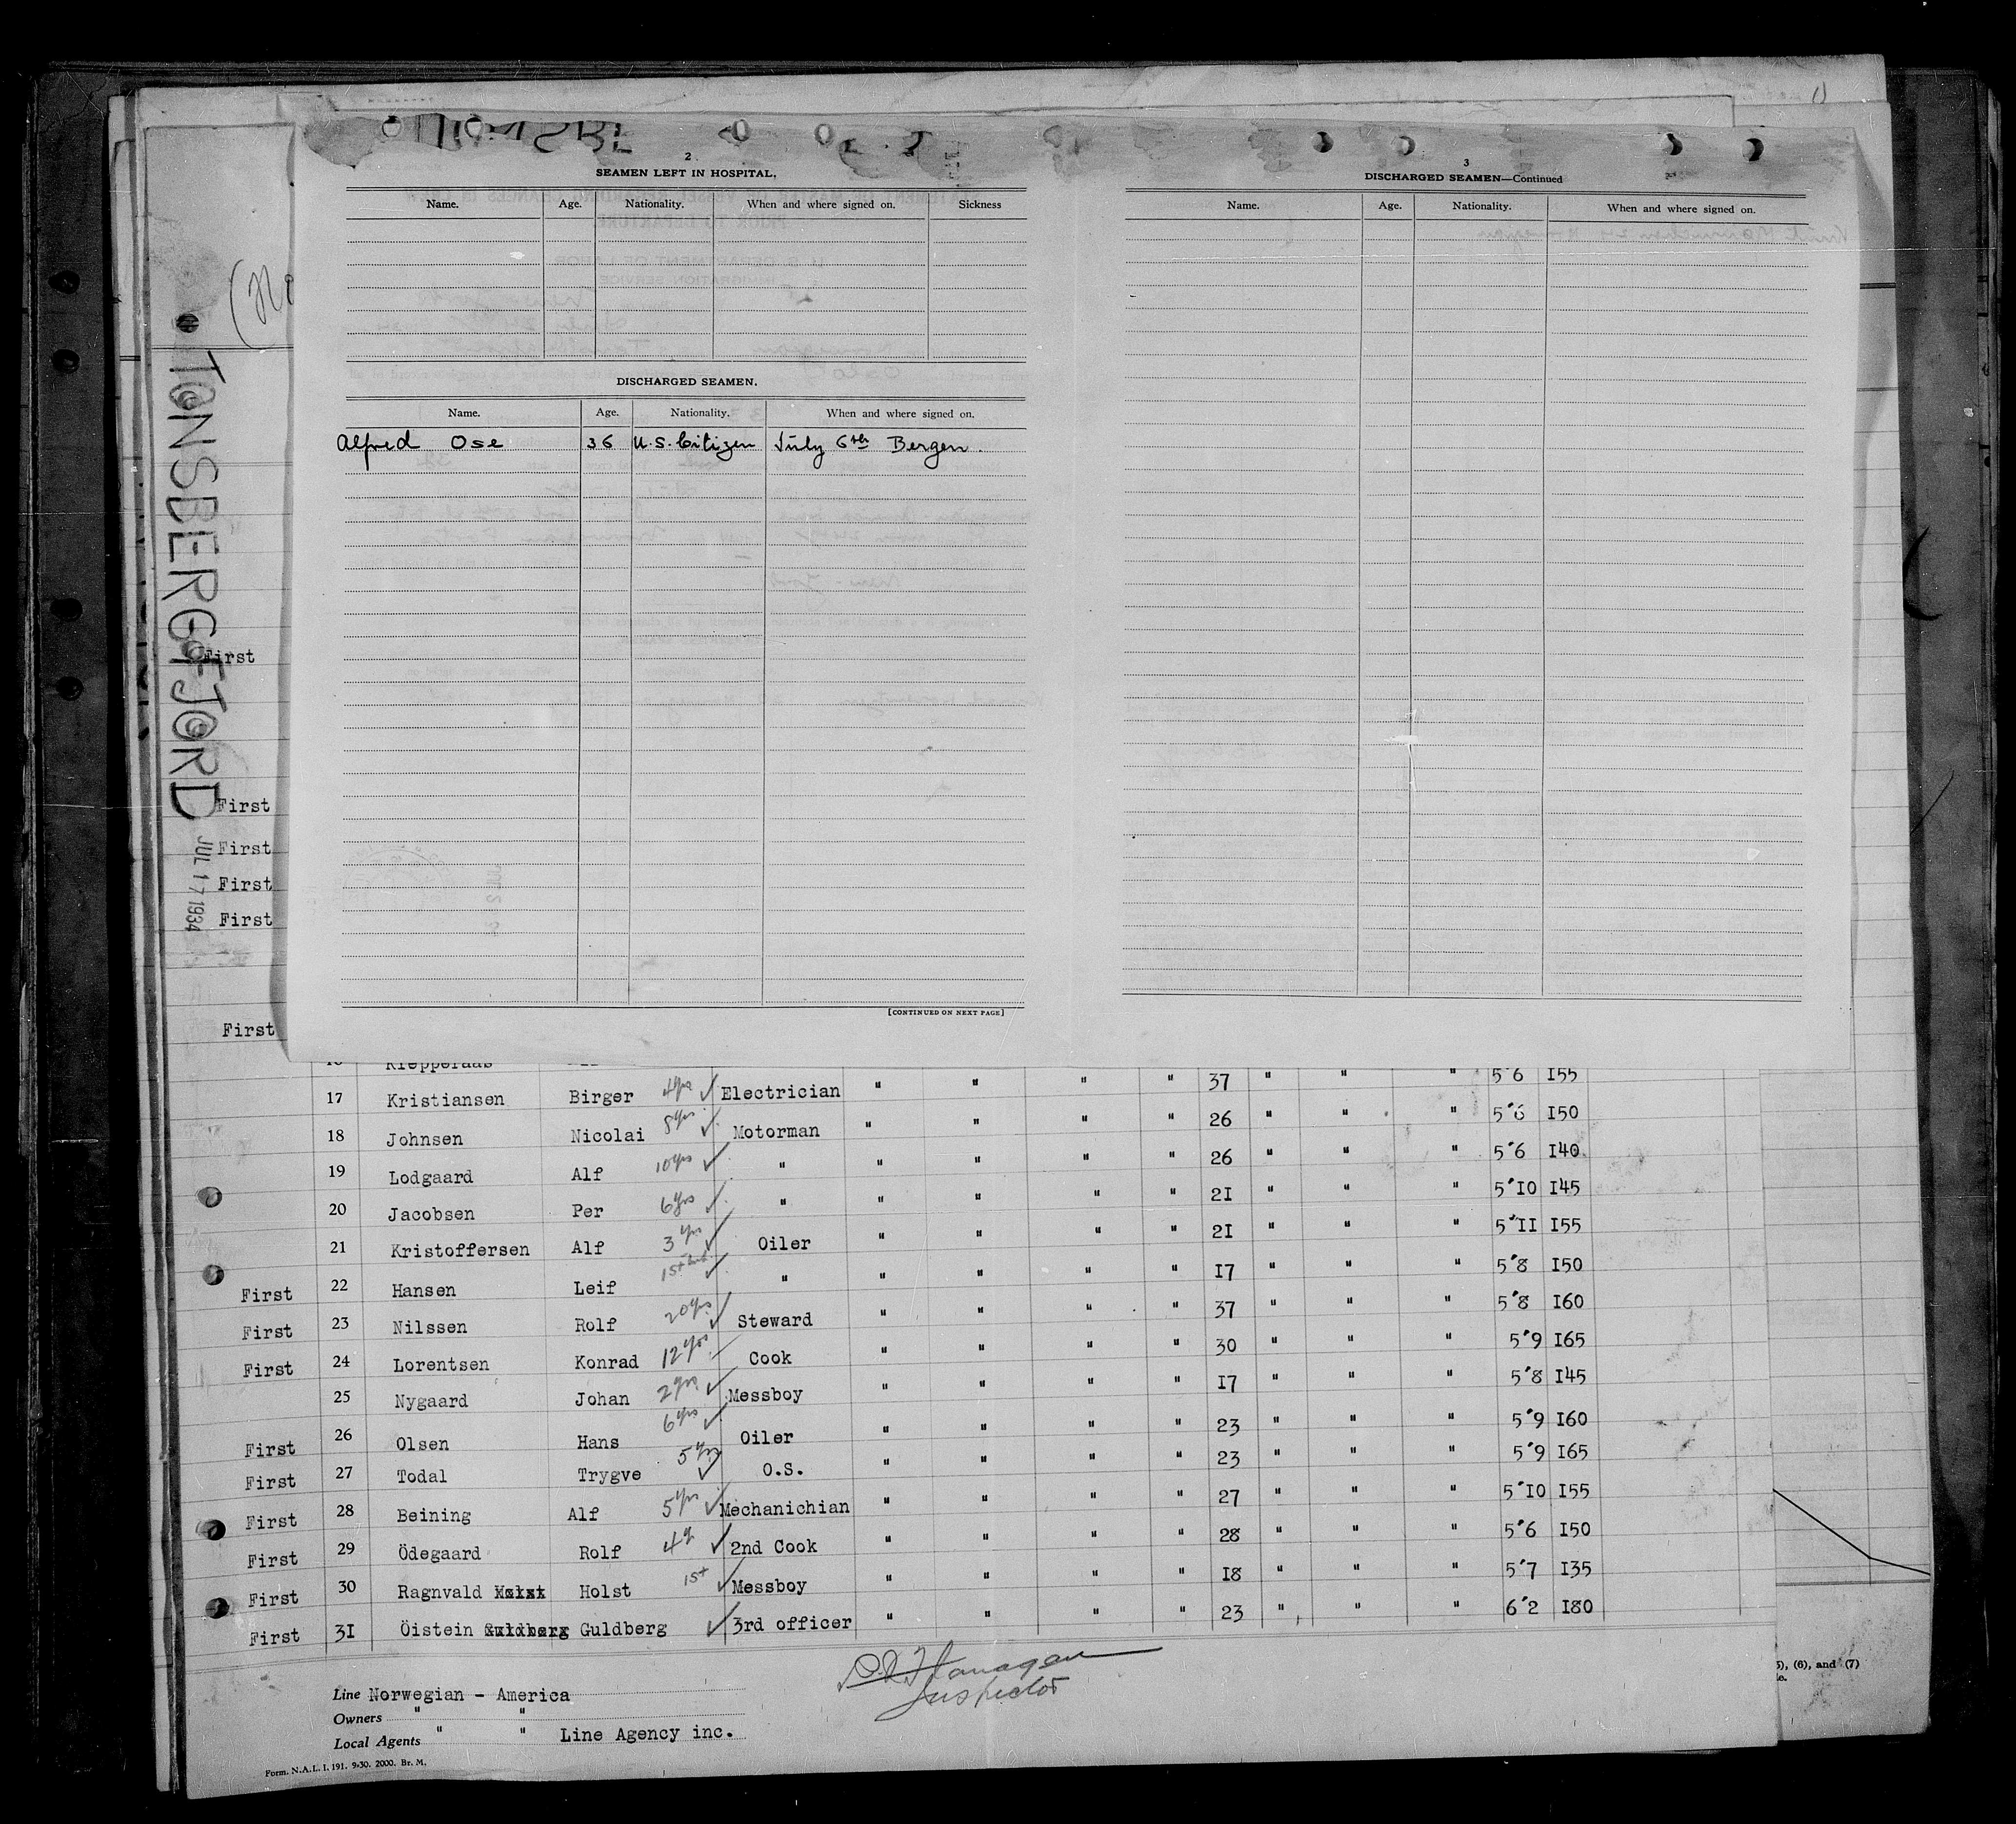 2
SEAMEN LEFT IN HOSPITAL.
Name. Age. Nationality. When and where signed on. Sickness
DISCHARGED SEAMEN.
Name. Age. Nationality. When and where signed on.
Alfred Ose 36 U.S. Citizen July 6th Bergen.
[CONTINUED ON NEXT PAGE]
3
DISCHARGED SEAMEN—Continued
Name. Age. Nationality. When and where signed on.
(No
TØNSBERGFJØRD
JUL 17 1934
First
First
First
First
First
First
17 Kristiansen Birger 4yrs ✓ Electrician " " " " 37 " " " 5'6 I55
18 Johnsen Nicolai 8yrs ✓ Motorman " " " " 26 " " " 5'6 I50
19 Lodgaard Alf 10yrs ✓ " " " " " 26 " " " 5'6 I40
20 Jacobsen Per 6yrs ✓ " " " " " 2I " " " 5'IO I45
21 Kristoffersen Alf 3yrs ✓ Oiler " " " " 2I " " " 5'II I55
First 22 Hansen Leif 1st ✓ " " " " " I7 " " " 5'8 I50
First 23 Nilssen Rolf 20yrs ✓ Steward " " " " 37 " " " 5'8 I60
First 24 Lorentsen Konrad 12yrs ✓ Cook " " " " 30 " " " 5'9 I65
25 Nygaard Johan 2yrs ✓ Messboy " " " " I7 " " " 5'8 I45
First 26 Olsen Hans 6yrs ✓ Oiler " " " " 23 " " " 5'9 I60
First 27 Todal Trygve 5yrs ✓ O.S. " " " " 23 " " " 5'9 I65
First 28 Beining Alf 5yrs ✓ Mechanichian " " " " 27 " " " 5'IO I55
First 29 Ödegaard Rolf 4y ✓ 2nd Cook " " " " 28 " " " 5'6 I50
First 30 Ragnvald Holst 1st ✓ Messboy " " " " I8 " " " 5'7 I35
First 3I Öistein Guldberg ✓ 3rd officer " " " " 23 " " " 6'2 I80
Line Norwegian - America
Owners " "
Local Agents " " Line Agency inc.
Flanagan
Inspector
Form. N.A.L. I. 191. 9-30. 2000. Br. M.
5), (6), and (7)